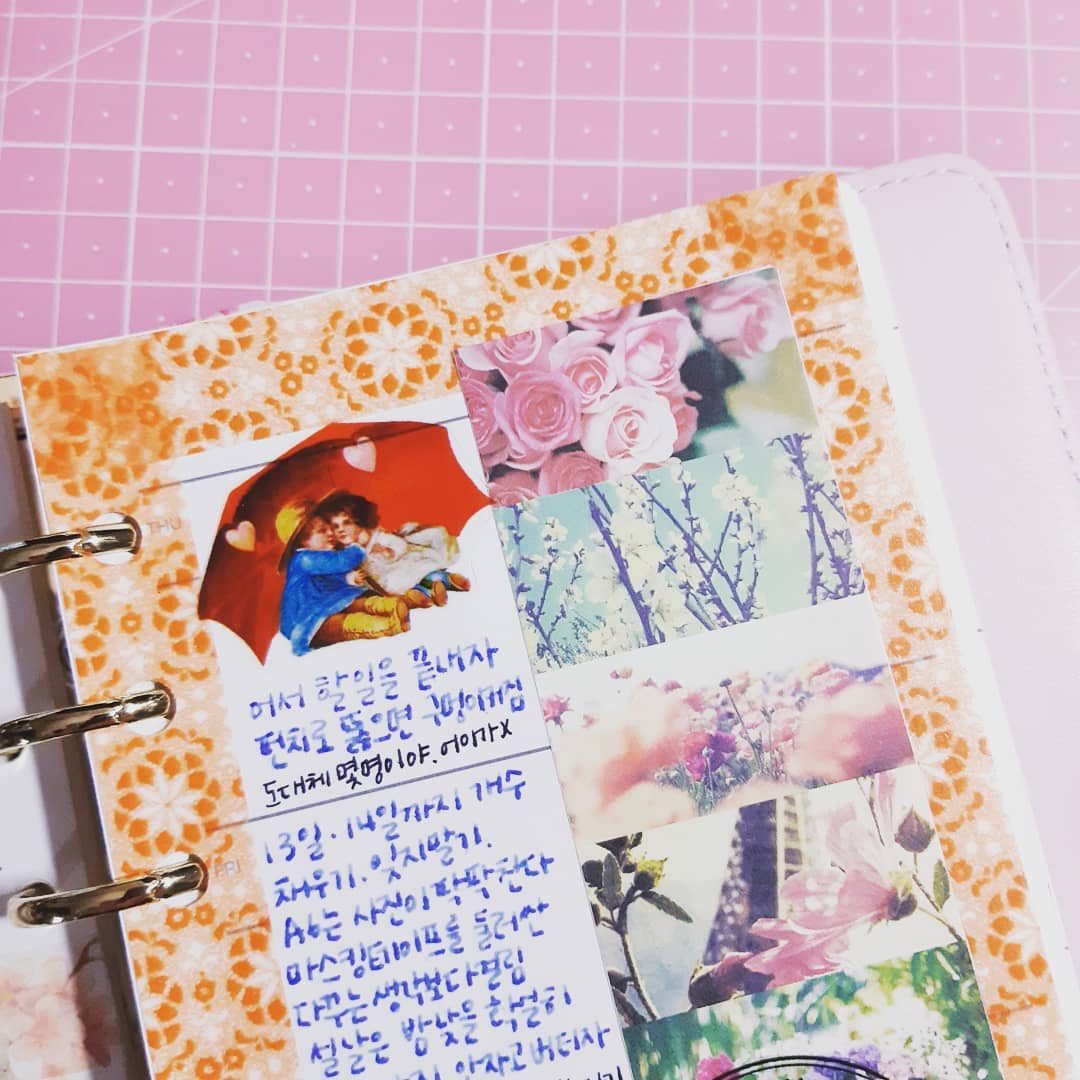 THU
어서 할일을 끝내자
펀치로 뚫으면 구멍이커짐
도대체 몇명이야. 어이가x
FRI
13일. 14일까지 개수
채우기. 잊지말기.
A6는 사진이 팍팍찬다
마스킹테이프를 둘러싼
다꾸는 생각보다멀림
설날은 밤낮을 확실히
안자고버터자